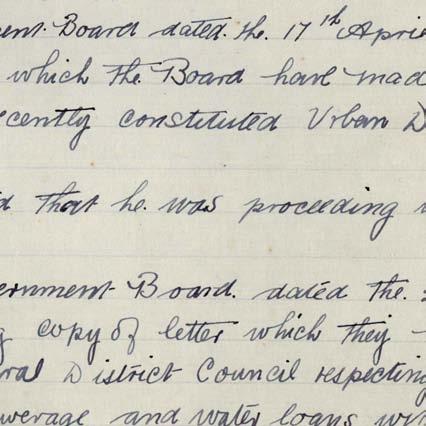 ent Board dated the 17th Apri
which the Board have mad
ecently constituted Urban D
d that he was proceeding
ernment Board dated the
g copy of letter which they
ral District Council respecting
werage and water loans wi